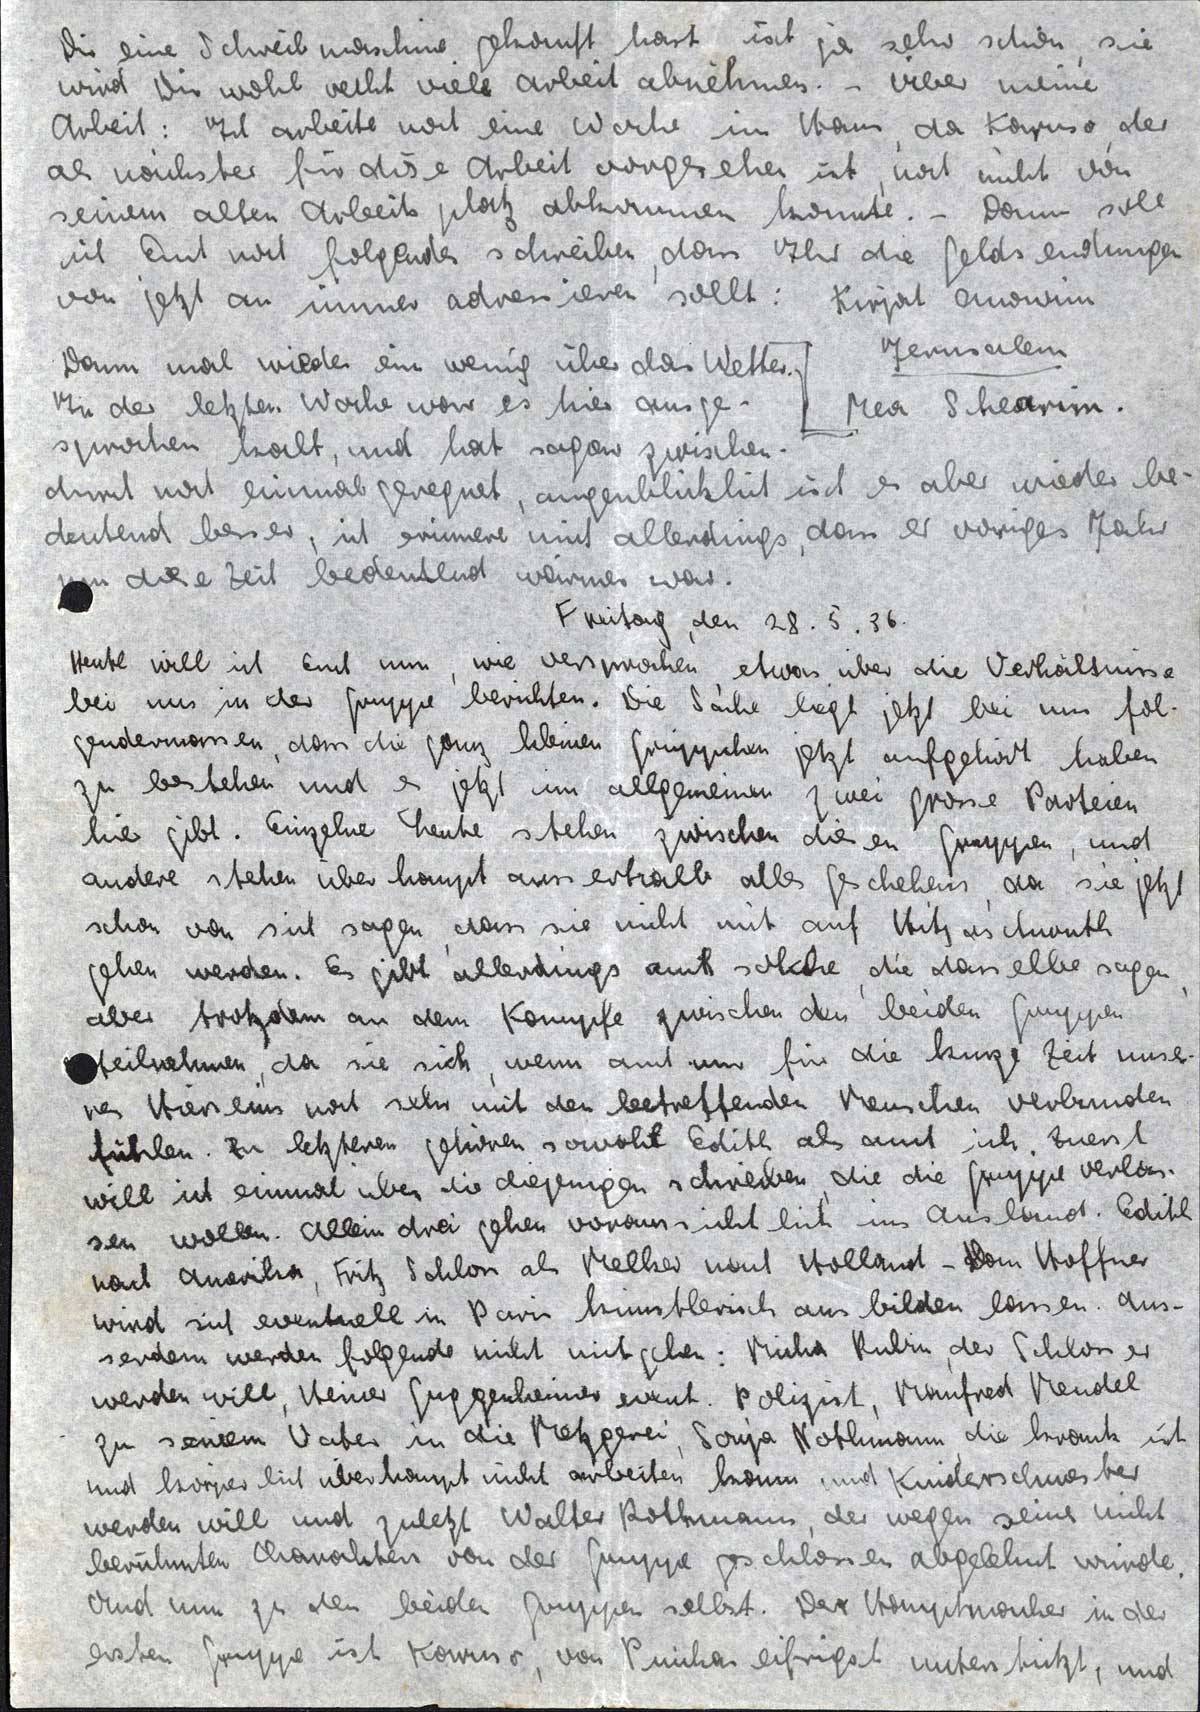 Du eine Schreibmaschine gekauft hast ist ja sehr schön, sie
wird Dir wohl recht viele Arbeit abnehmen. - Über meine
Arbeit: Ich arbeite noch eine Woche im Haus, da Karuso, der
als nächster für diese Arbeit vorgesehen ist, noch nicht von
seinem alten Arbeitsplatz abkommen konnte. - Dann soll
ich Euch noch folgendes schreiben, dass Ihr die Geldsendungen
von jetzt an immer adressieren sollt: Kirjat Anawim
Jerusalem
Mea Schearim.
Dann mal wieder ein wenig über das Wetter.
In der letzten Woche war es hier ausge-
sprochen kalt, und hat sogar zwischen-
durch noch einmal geregnet, augenblicklich ist es aber wieder be-
deutend besser, ich erinnere mich allerdings, dass er voriges Jahr
um diese Zeit bedeutend wärmer war.
Freitag, den 28.5.36.
Heute will ich Euch nun, wie versprochen, etwas über die Verhältnisse
bei uns in der Gruppe berichten. Die Sache liegt jetzt bei uns fol-
gendermassen, dass die ganz kleinen Grüppchen jetzt aufgehört haben
zu bestehen und es jetzt im allgemeinen zwei grosse Parteien
hier gibt. Einzelne Leute stehen zwischen diesen Gruppen, und
andere stehen überhaupt ausserhalb alles Geschehens, da sie jetzt
schon von sich sagen, dass sie nicht mit auf Hitjaschwuth
gehen werden. Es gibt allerdings auch solche, die dasselbe sagen,
aber trotzdem an dem Kampfe zwischen den beiden Gruppen
teilnehmen, da sie sich, wenn auch nur für die kurze Zeit unse-
res Hierseins noch sehr mit den betreffenden Menschen verbunden
fühlen. Zu letzteren gehören sowohl Edith als auch ich. Zuerst
will ich einmal über die diejenigen schreiben, die die Gruppe verlas-
sen wollen. Allein drei gehen voraussichtlich ins Ausland. Edith
nach Amerika, Fritz Schloss als Melker nach Holland - Hoffner
wird sich eventuell in Paris künstlerisch ausbilden lassen. Aus-
serdem werden folgende nicht mitgehen: Micha Rubin, der Schlosser
werden will, Heiner Guggenheimer event. Polizist, Manfred Mendel
zu seinem Vater in die Metzgerei, Sonja Nothmann, die krank ist
und körperlich überhaupt nicht arbeiten kann und Kinderschwester
werden will und zuletzt Walter Rothmann, der wegen seines nicht
berühmten Charakters von der Gruppe geschlossen abgelehnt wurde.
Und nun zu den beiden Gruppen selbst. Der Hauptmacher in der
ersten Gruppe ist Karuso, von Pinchas eifrigst unterstützt, und